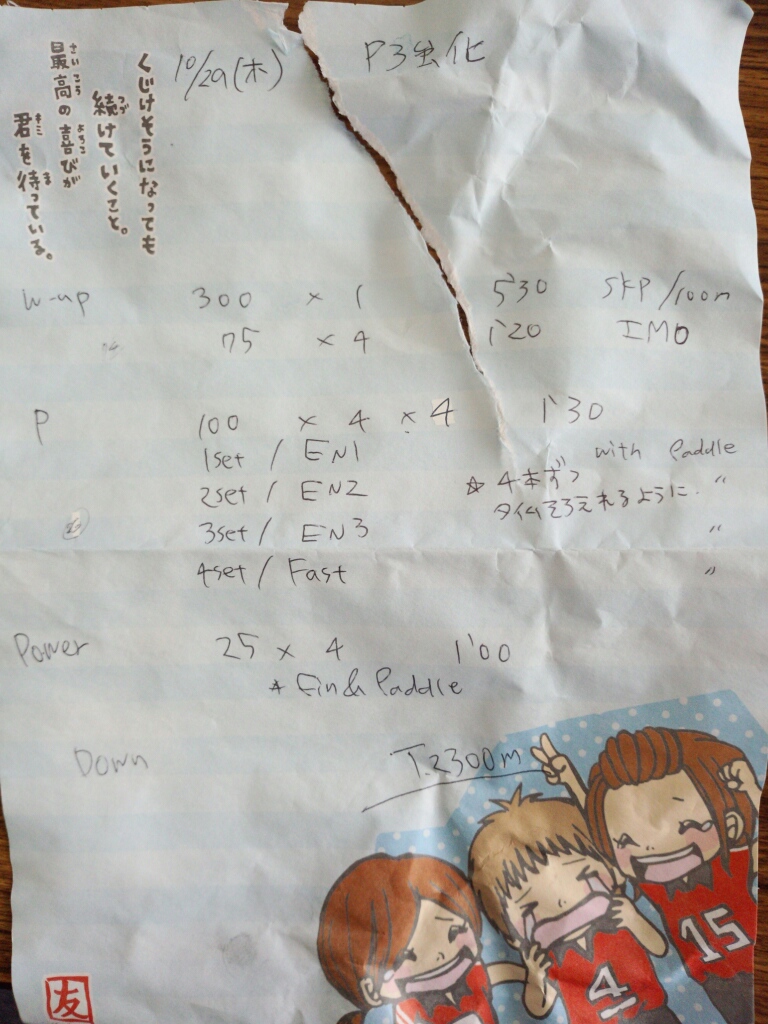 くじけそうになっても
続けていくこと。
最高の喜びが
君を待っている。
つづ
さいこう
よろこ
キミ
ま
10/29(木) P3強化
W-up 300 × 1 5'30 SKP/100m
〃 75 × 4 1'20 IMO
P 100 × 4 × 4 1'30
1set / EN1 with Paddle
2set / EN2 ☆ 4本ずつ 〃
タイムそろえれるように.
3set / EN3 〃
4set / Fast 〃
Power 25 × 4 1'00
☆ Fin & Paddle
Down T.2300m
4
15
友